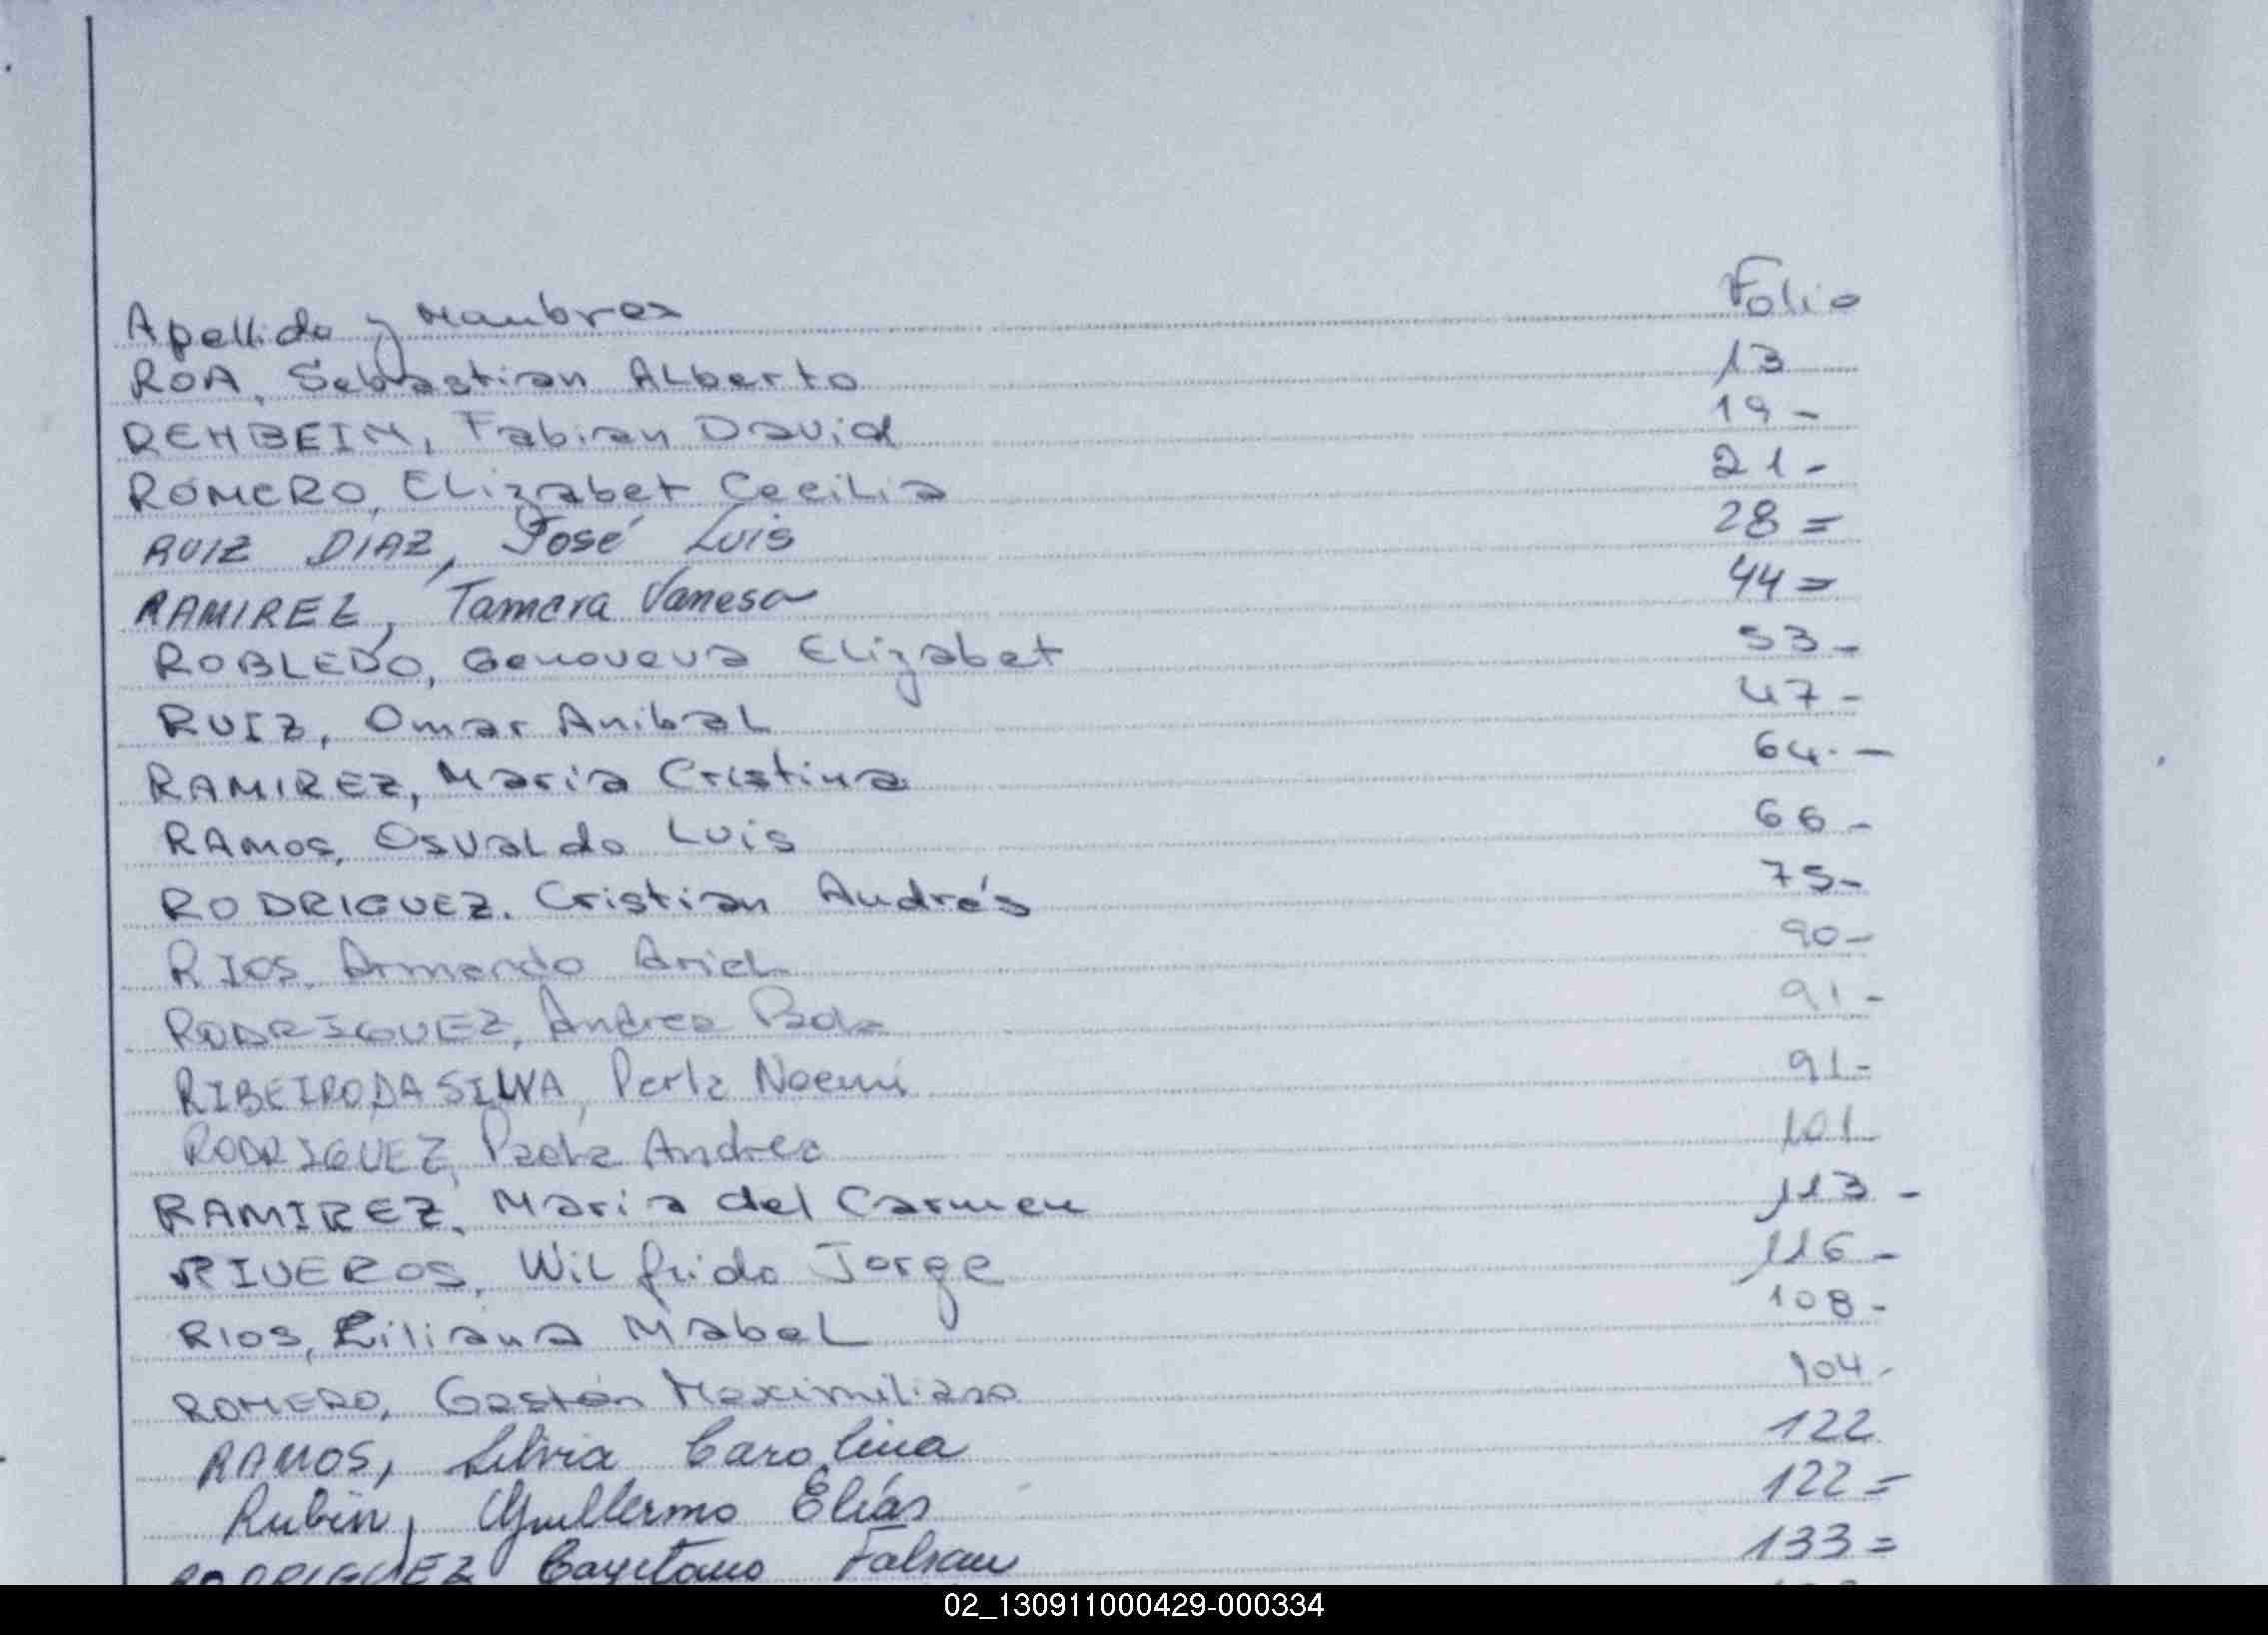 Apellido y Nombres Folio
ROA, Sebastian Alberto 13
REHBEIN, Fabian David 19-
ROMERO, Elizabet Cecilia 21-
RUIZ DIAZ, José Luis 28=
RAMIREZ, Tamara Vanesa 44=
ROBLEDO, Genoveva Elizabet 53-
RUIZ, Omar Anibal 47-
RAMIREZ, Maria Cristina 64.-
RAMOS, Osvaldo Luis 66-
RODRIGUEZ. Cristian Andrés 75-
RIOS, Armando Ariel 90-
RODRIGUEZ, Andrea Paola 91-
RIBEIRO DA SILVA, Perla Noemi 91-
RODRIGUEZ, Paola Andrea 101
RAMIREZ, Maria del Carmen 113-
RIVEROS, Wilfrido Jorge 116-
RIOS, Liliana Mabel 108-
ROMERO, Gastón Maximiliano 104-
RAMOS, Silvia Carolina 122
Rubin, Guillermo Elías 122=
RODRIGUEZ Cayetano Fabian 133=
02_130911000429-000334